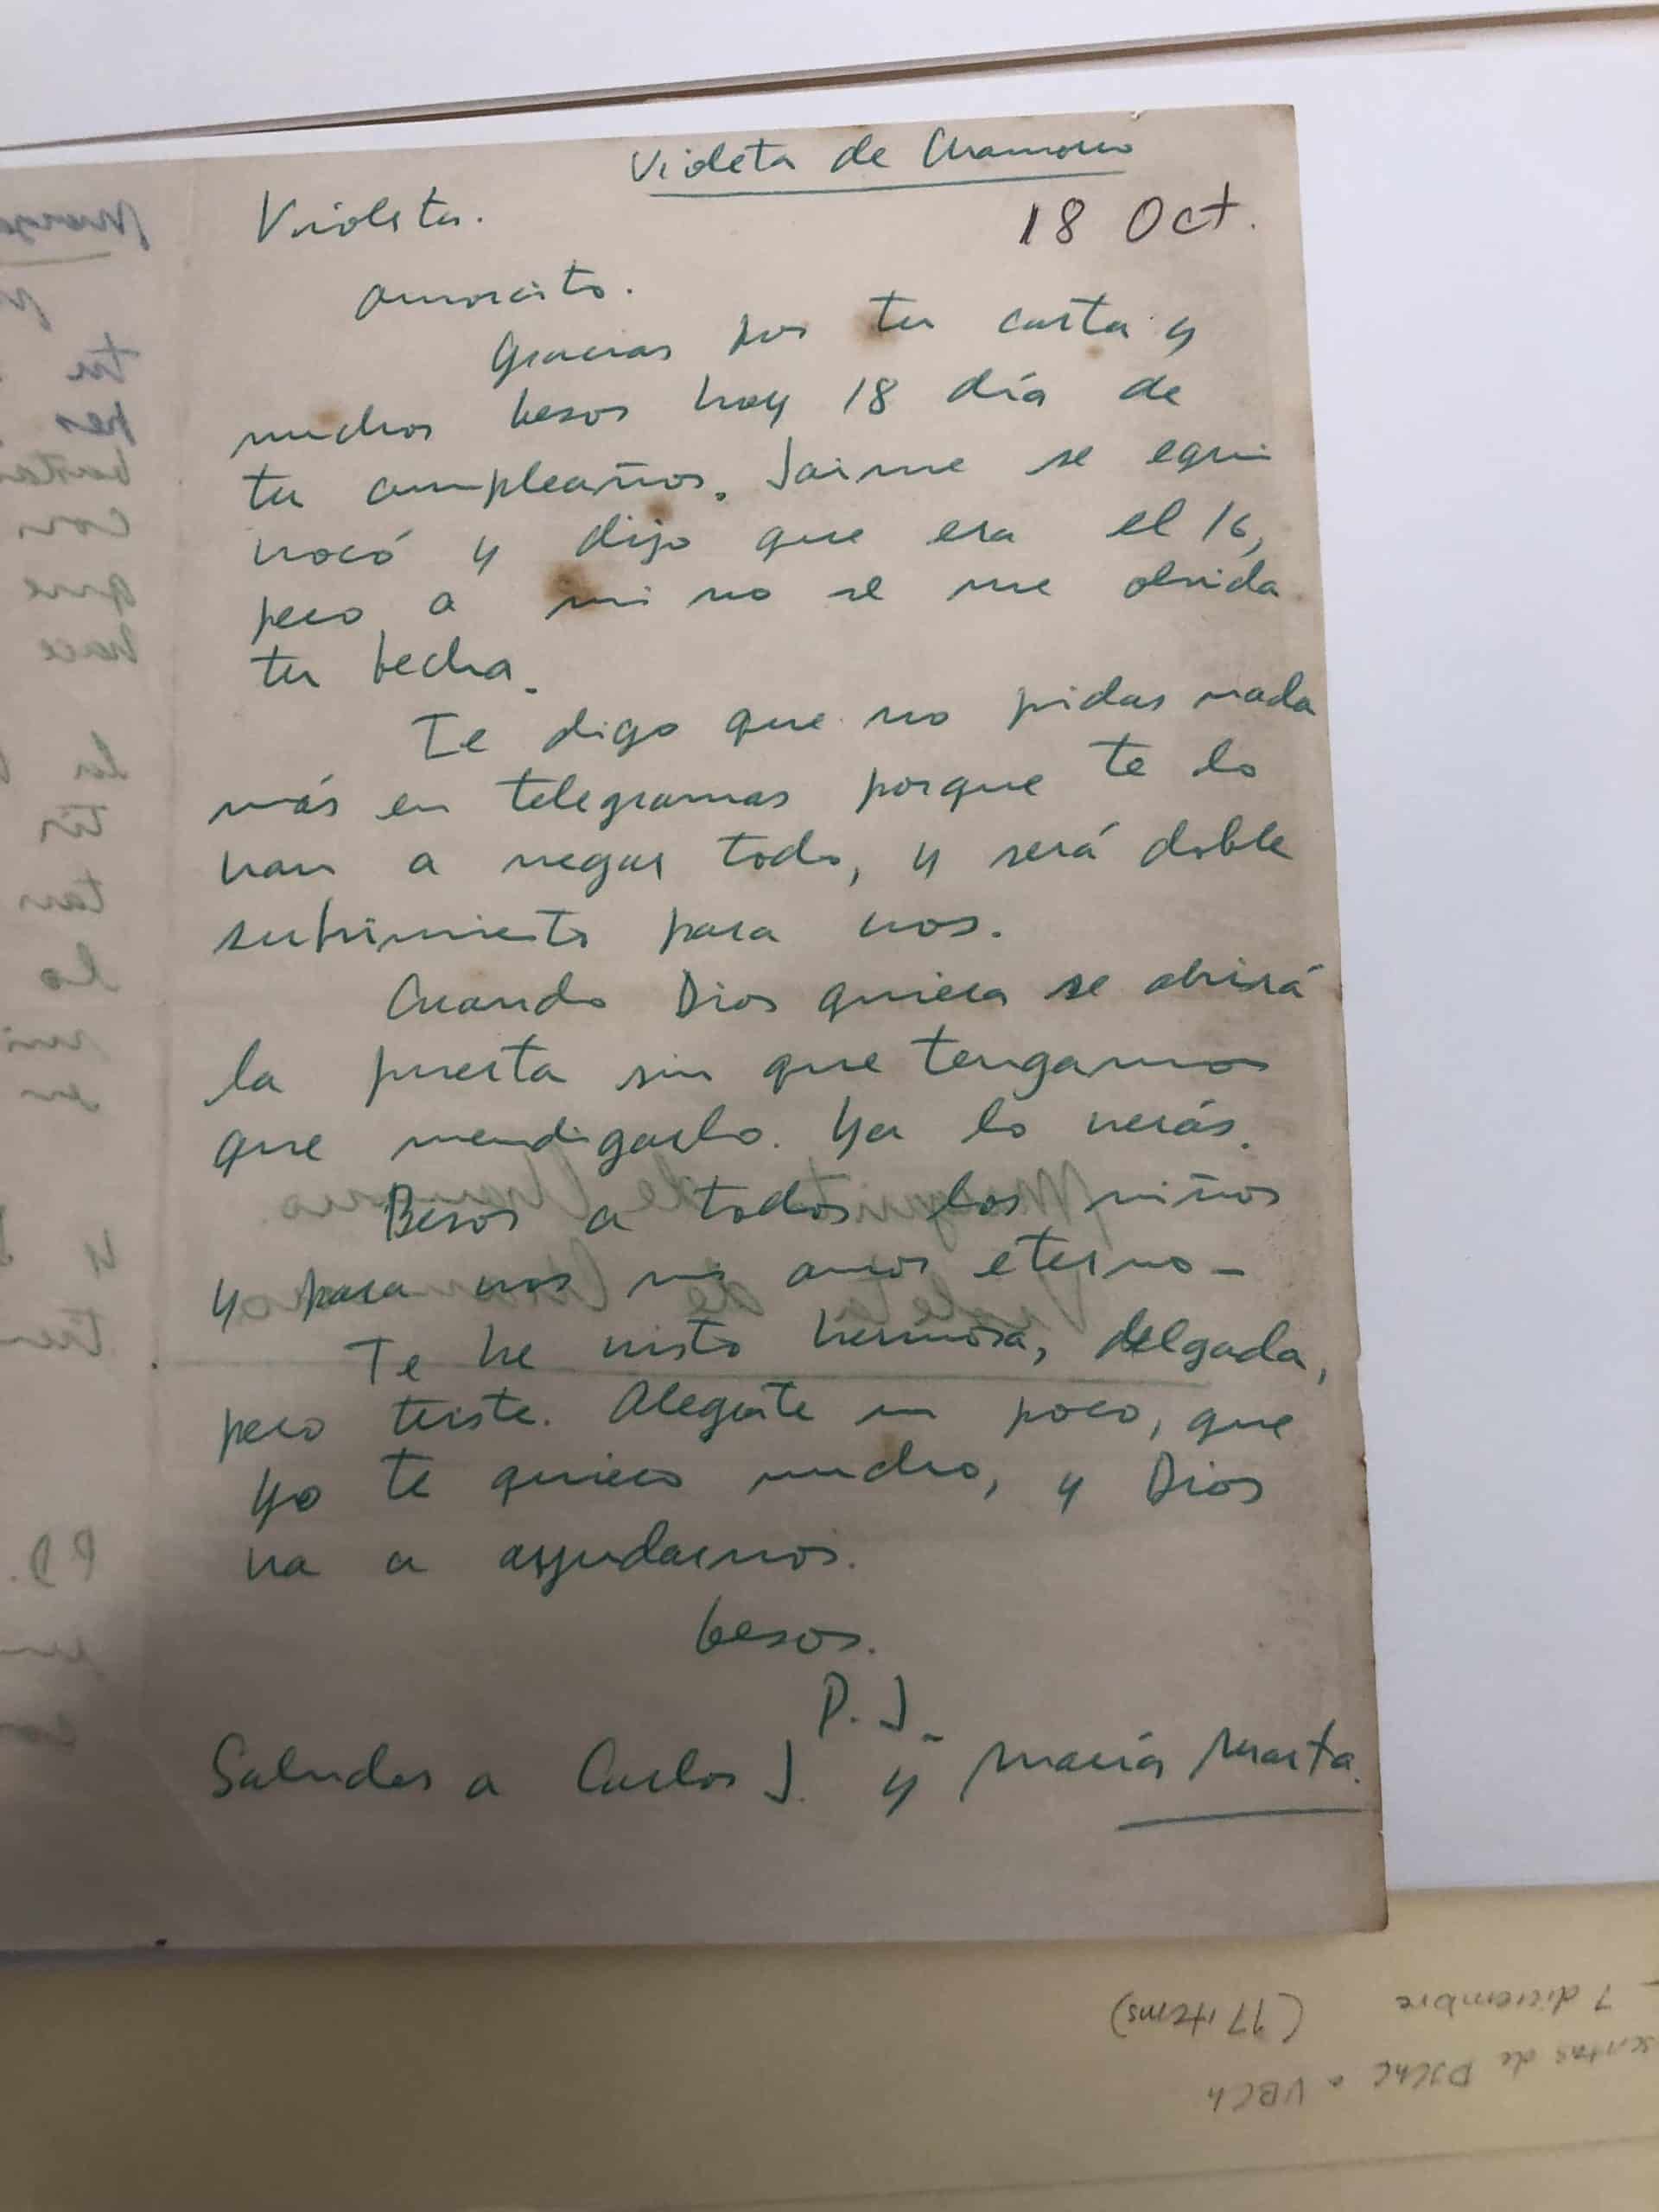 Violeta de Chamorro
Violeta.
18 Oct.
Amorcito.
Gracias por tu carta y
muchos besos hoy 18 día de
tu cumpleaños. Jaime se equi
vocó y dijo que era el 16,
pero a mi no se me olvida
tu fecha.
Te digo que no pidas nada
más en telegramas porque te lo
van a negar todo, y será doble
sufrimiento para vos.
Cuando Dios quiera se abrirá
la puerta sin que tengamos
que mendigarlo. Ya lo verás.
Besos a todos los niños
y para vos mi amor eterno-
Te he visto hermosa, delgada,
pero triste. Alegrate un poco, que
yo te quiero mucho, y Dios
va a ayudarnos.
besos.
P.J.
Saludes a Carlos J. y María Marta.
Margarita de Chamorro.
Violeta de Chamorro
tu
con
que
hace
la
tan
lo
mi
en
y
P.D.
un
7 diciembre (77 items)
de PJChC a VBCh